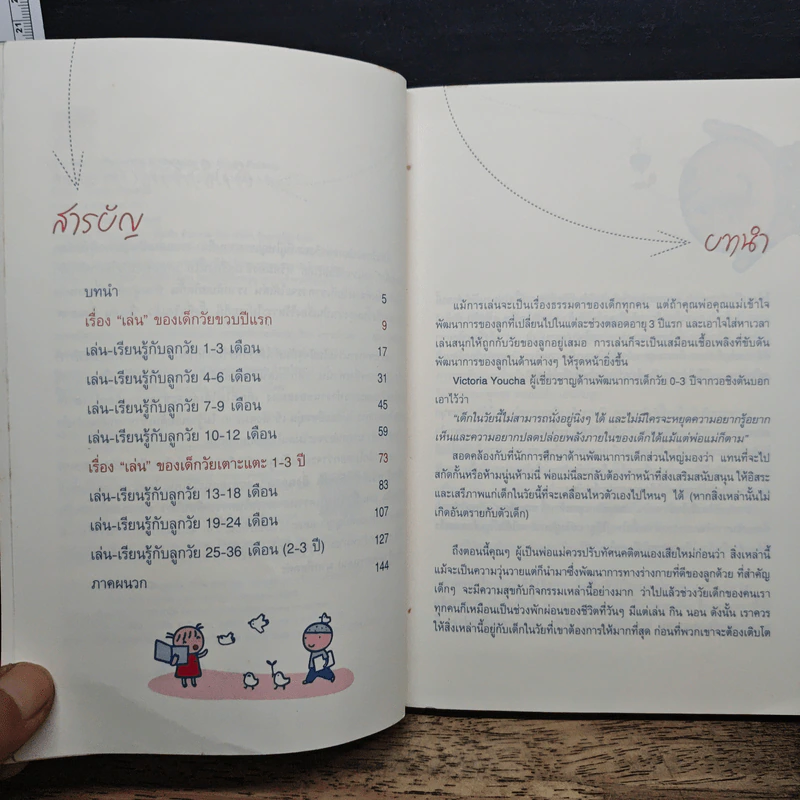 21
สารบัญ
บทนำ 5
เรื่อง “เล่น” ของเด็กวัยขวบปีแรก 9
เล่น-เรียนรู้กับลูกวัย 1-3 เดือน 17
เล่น-เรียนรู้กับลูกวัย 4-6 เดือน 31
เล่น-เรียนรู้กับลูกวัย 7-9 เดือน 45
เล่น-เรียนรู้กับลูกวัย 10-12 เดือน 59
เรื่อง “เล่น” ของเด็กวัยเตาะแตะ 1-3 ปี 73
เล่น-เรียนรู้กับลูกวัย 13-18 เดือน 83
เล่น-เรียนรู้กับลูกวัย 19-24 เดือน 107
เล่น-เรียนรู้กับลูกวัย 25-36 เดือน (2-3 ปี) 127
ภาคผนวก 144
บทนำ
แม้การเล่นจะเป็นเรื่องธรรมดาของเด็กทุกคน แต่ถ้าคุณพ่อคุณแม่เข้าใจ
พัฒนาการของลูกที่เปลี่ยนไปในแต่ละช่วงตลอดอายุ 3 ปีแรก และเอาใจใส่หาเวลา
เล่นสนุกให้ถูกกับวัยของลูกอยู่เสมอ การเล่นก็จะเป็นเสมือนเชื้อเพลิงที่ขับดัน
พัฒนาการของลูกในด้านต่างๆ ให้รุดหน้ายิ่งขึ้น
Victoria Youcha ผู้เชี่ยวชาญด้านพัฒนาการเด็กวัย 0-3 ปีจากวอชิงตันบอก
เอาไว้ว่า
“เด็กในวัยนี้ไม่สามารถนั่งอยู่นิ่งๆ ได้ และไม่มีใครจะหยุดความอยากรู้อยาก
เห็นและความอยากปลดปล่อยพลังภายในของเด็กได้แม้แต่พ่อแม่ก็ตาม”
สอดคล้องกับที่นักการศึกษาด้านพัฒนาการเด็กส่วนใหญ่มองว่า แทนที่จะไป
สกัดกั้นหรือห้ามนู่นห้ามนี่ พ่อแม่นี่ละกลับต้องทำหน้าที่ส่งเสริมสนับสนุน ให้อิสระ
และเสรีภาพแก่เด็กในวัยนี้ที่จะเคลื่อนไหวตัวเองไปไหนๆ ได้ (หากสิ่งเหล่านั้นไม่
เกิดอันตรายกับตัวเด็ก)
ถึงตอนนี้คุณๆ ผู้เป็นพ่อแม่ควรปรับทัศนคติตนเองเสียใหม่ก่อนว่า สิ่งเหล่านี้
แม้จะเป็นความวุ่นวายแต่ก็นำมาซึ่งพัฒนาการทางร่างกายที่ดีของลูกด้วย ที่สำคัญ
เด็กๆ จะมีความสุขกับกิจกรรมเหล่านี้อย่างมาก ว่าไปแล้วช่วงวัยเด็กของคนเรา
ทุกคนก็เหมือนเป็นช่วงพักผ่อนของชีวิตที่วันๆ มีแต่เล่น กิน นอน ดังนั้น เราควร
ให้สิ่งเหล่านี้อยู่กับเด็กในวัยที่เขาต้องการให้มากที่สุด ก่อนที่พวกเขาจะต้องเติบโต